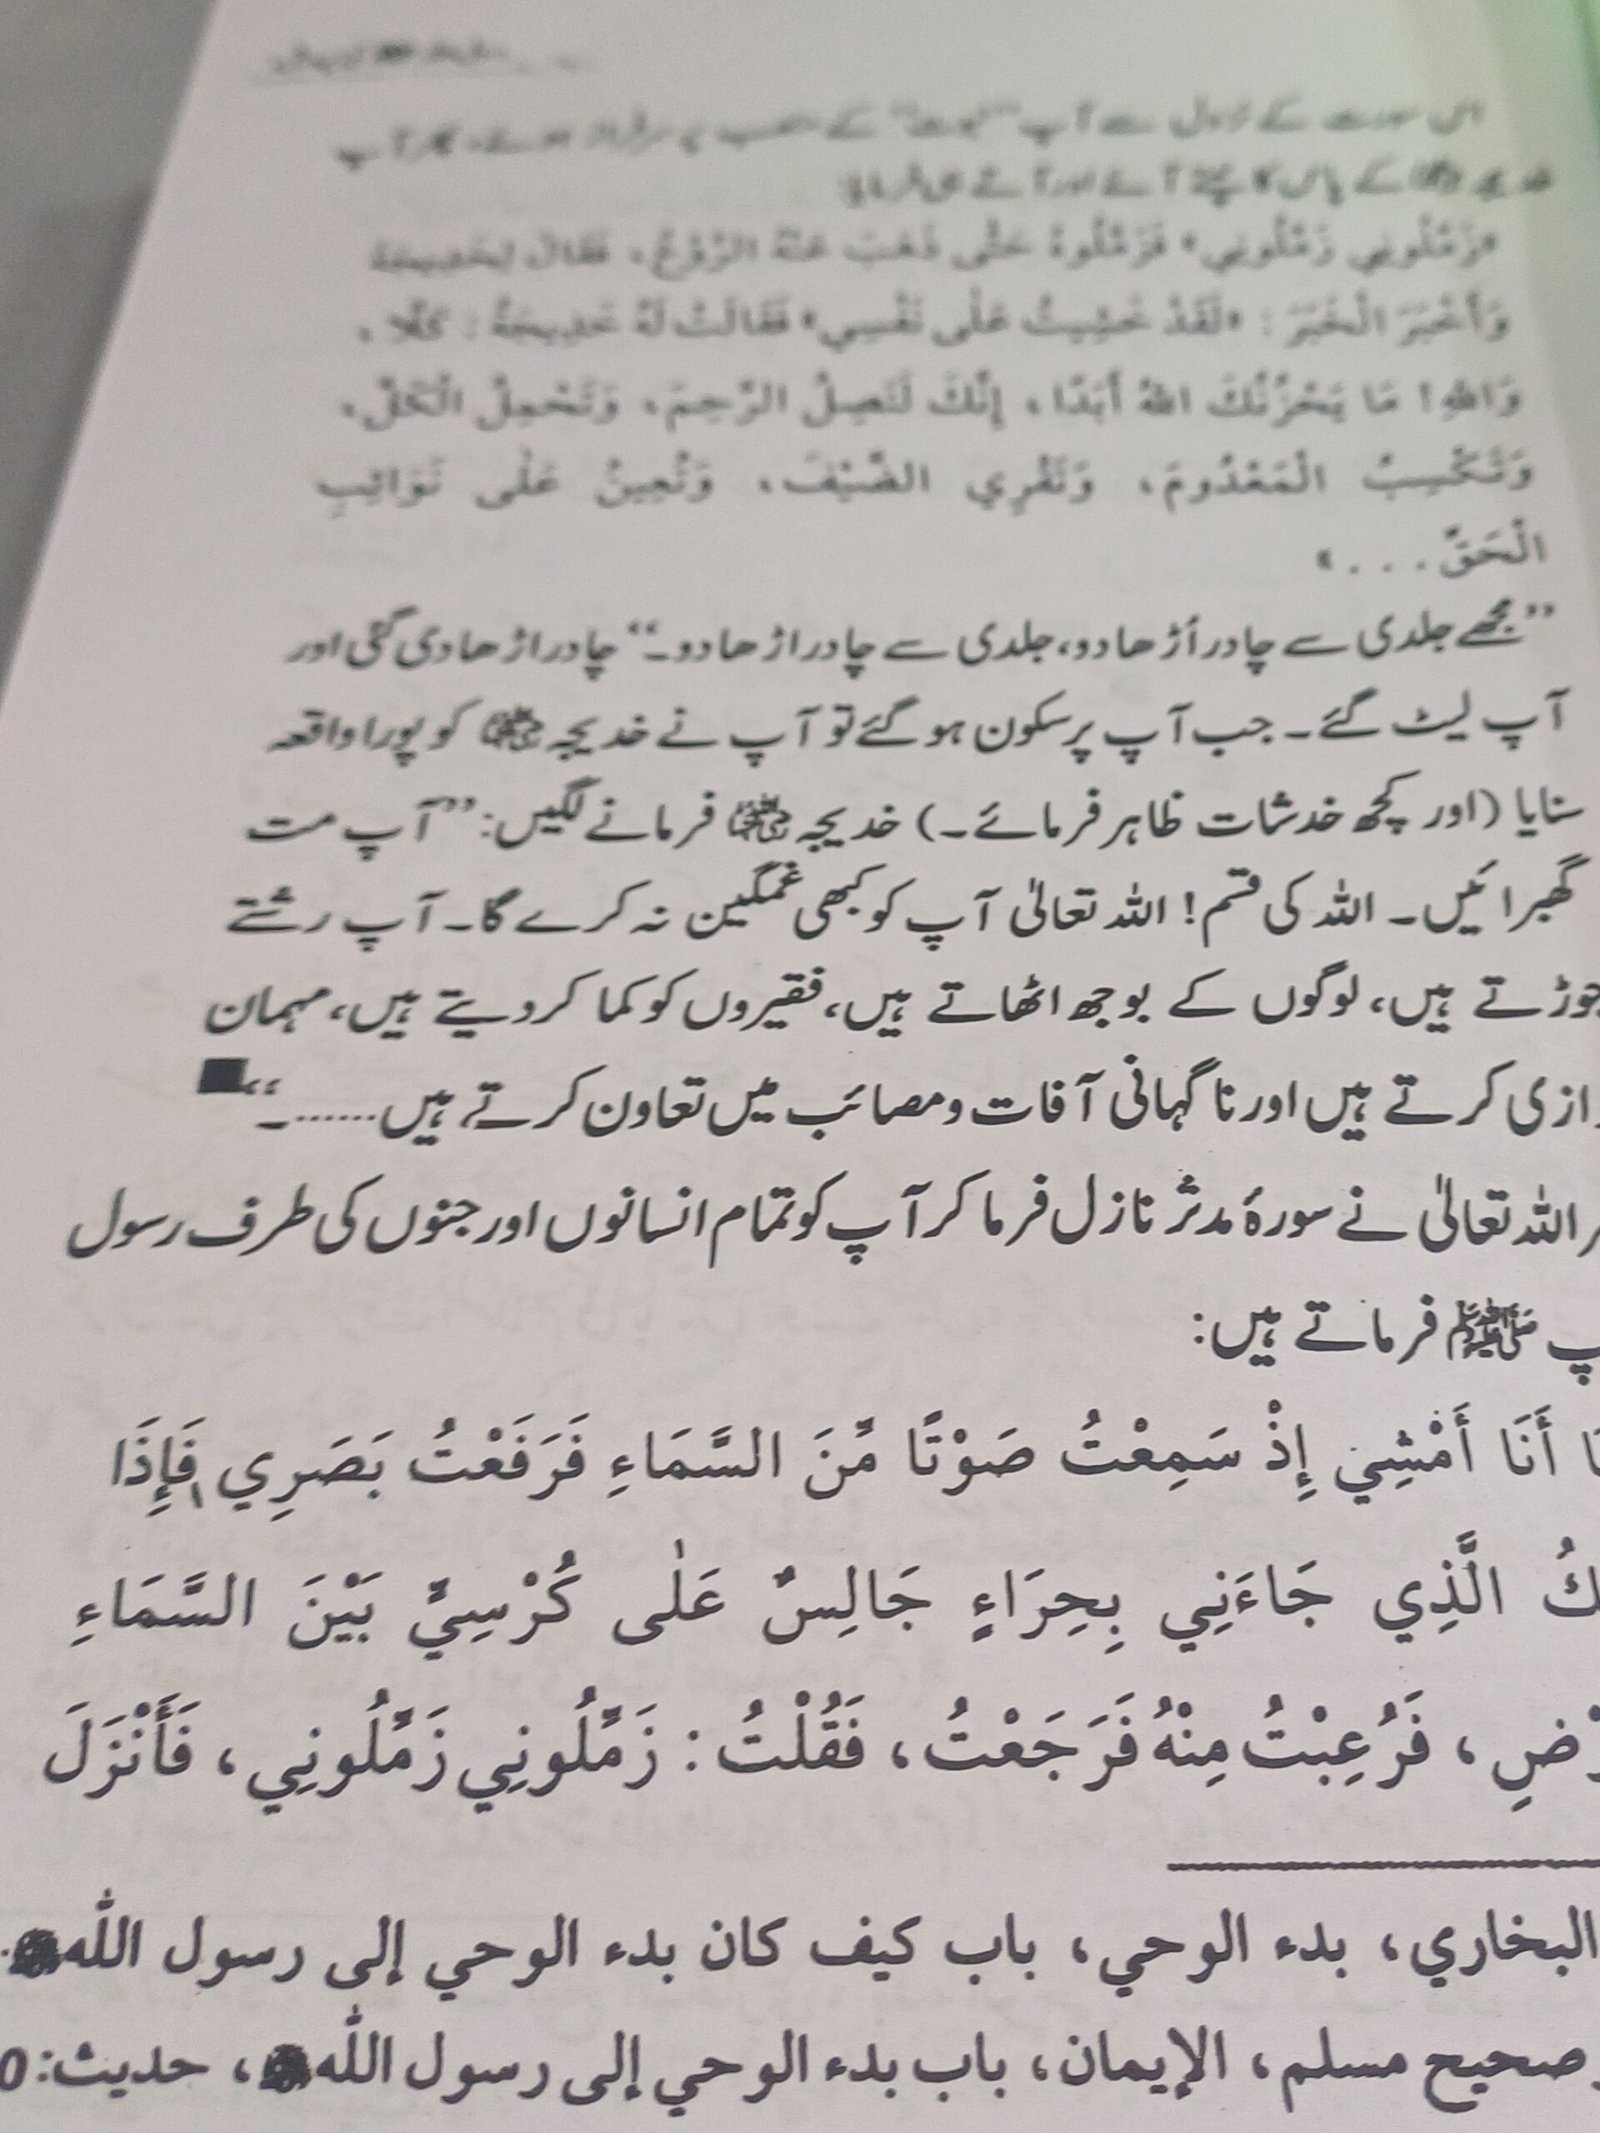 اس سورت کے نزول سے آپ ’’نبوت‘‘ کے منصب پر سرفراز ہوئے، پھر آپ
خدیجہ رضی اللہ عنہا کے پاس کانپتے آئے اور آتے ہی فرمایا:
«زَمِّلُونِي زَمِّلُونِي» فَزَمَّلُوهُ حَتَّى ذَهَبَ عَنْهُ الرَّوْعُ، فَقَالَ لِخَدِيجَةَ
وَأَخْبَرَ الْخَبَرَ: «لَقَدْ خَشِيتُ عَلٰى نَفْسِي» فَقَالَتْ لَهُ خَدِيجَةُ: كَلَّا،
وَاللهِ! مَا يَحْزُنُكَ اللهُ أَبَدًا، إِنَّكَ لَتَصِلُ الرَّحِمَ، وَتَحْمِلُ الْكَلَّ،
وَتَكْسِبُ الْمَعْدُومَ، وَتَقْرِي الضَّيْفَ، وَتُعِينُ عَلٰى نَوَائِبِ
الْحَقِّ...»
’’مجھے جلدی سے چادر اُڑھا دو، جلدی سے چادر اڑھا دو۔‘‘ چادر اڑھا دی گئی اور
آپ لیٹ گئے۔ جب آپ پرسکون ہو گئے تو آپ نے خدیجہ رضی اللہ عنہا کو پورا واقعہ
سنایا (اور کچھ خدشات ظاہر فرمائے۔) خدیجہ رضی اللہ عنہا فرمانے لگیں: ’’آپ مت
گھبرائیں۔ اللہ کی قسم! اللہ تعالیٰ آپ کو کبھی غمگین نہ کرے گا۔ آپ رشتے
جوڑتے ہیں، لوگوں کے بوجھ اٹھاتے ہیں، فقیروں کو کما کر دیتے ہیں، مہمان
ازی کرتے ہیں اور ناگہانی آفات و مصائب میں تعاون کرتے ہیں......۔‘‘
اللہ تعالیٰ نے سورۂ مدثر نازل فرما کر آپ کو تمام انسانوں اور جنوں کی طرف رسول
پ ﷺ فرماتے ہیں:
ا أَنَا أَمْشِي إِذْ سَمِعْتُ صَوْتًا مِّنَ السَّمَاءِ فَرَفَعْتُ بَصَرِي فَإِذَا
كُ الَّذِي جَاءَنِي بِحِرَاءٍ جَالِسٌ عَلٰى كُرْسِيٍّ بَيْنَ السَّمَاءِ
رْضِ، فَرُعِبْتُ مِنْهُ فَرَجَعْتُ، فَقُلْتُ: زَمِّلُونِي زَمِّلُونِي، فَأَنْزَلَ
البخاري، بدء الوحي، باب كيف كان بدء الوحي إلى رسول الله
صحيح مسلم، الإيمان، باب بدء الوحي إلى رسول الله، حديث:0